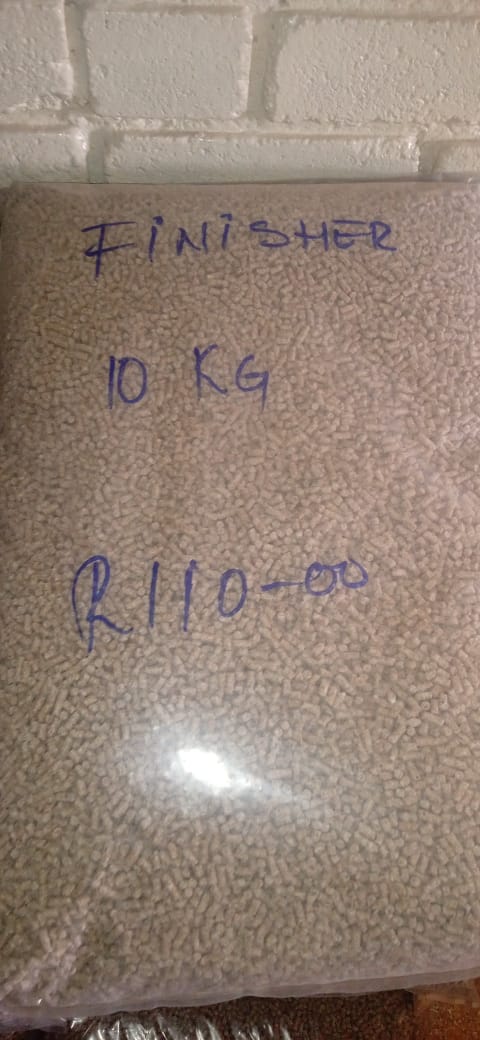 FiNiSHER
10 KG
R110-00